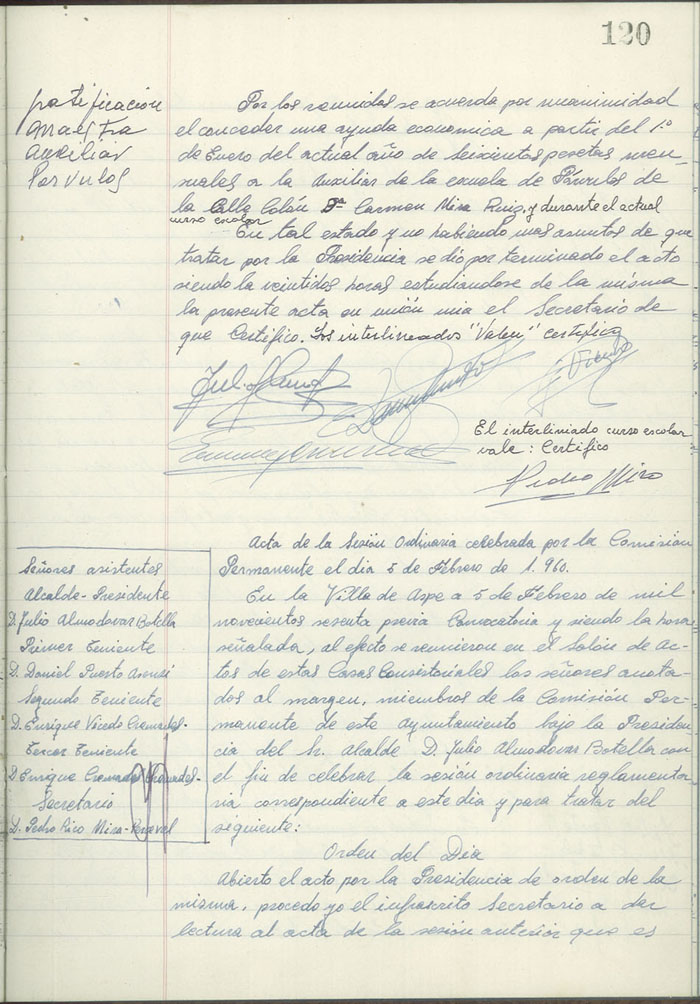 120
gratificación
Maestra
Auxiliar
Parvulos
Por los reunidos se acuerda por unanimidad
el conceder una ayuda economica a partir del 1º
de Enero del actual año de seiscientas pesetas men-
suales a la Auxiliar de la escuela de Párvulos de
la Calle Colón Dª Carmen Mira Ruiz, y durante el actual
curso escolar
En tal estado y no habiendo mas asuntos de que
tratar por la Presidencia se dio por terminado el acto
siendo la veintidos horas estudiandose de la misma
la presente acta en unión mia el Secretario de
que Certifico. Los interlineados "Valen" certifico
El interliniado curso escolar
vale: Certifico
Pedro Miro
Señores asistentes
Alcalde-Presidente
D. Julio Almodovar Botella
Primer Teniente
D. Daniel Puerto Asensi
Segundo Teniente
D. Enrique Vicedo Cremades-
Tercer Teniente
D. Enrique Cremades Cremades-
Secretario
D. Pedro Rico Mira-Perceval
Acta de la Sesión Ordinaria celebrada por la Comisión
Permanente el dia 5 de Febrero de 1.960.
En la Villa de Aspe a 5 de Febrero de mil
novecientos sesenta previa Convocatoria y siendo la hora
señalada, al efecto se reunieron en el Salón de Ac-
tos de estas Casas Consistoriales los señores anota-
dos al margen, miembros de la Comisión Per-
manente de este ayuntamiento bajo la Presiden-
cia del Sr. Alcalde D. Julio Almodovar Botella con
el fin de celebrar la sesión ordinaria reglamenta-
ria correspondiente a este dia y para tratar del
siguiente:
Orden del Dia
Abierto el acto por la Presidencia de orden de la
misma, procedo yo el infrascrito Secretario a dar
lectura al acta de la sesión anterior que es